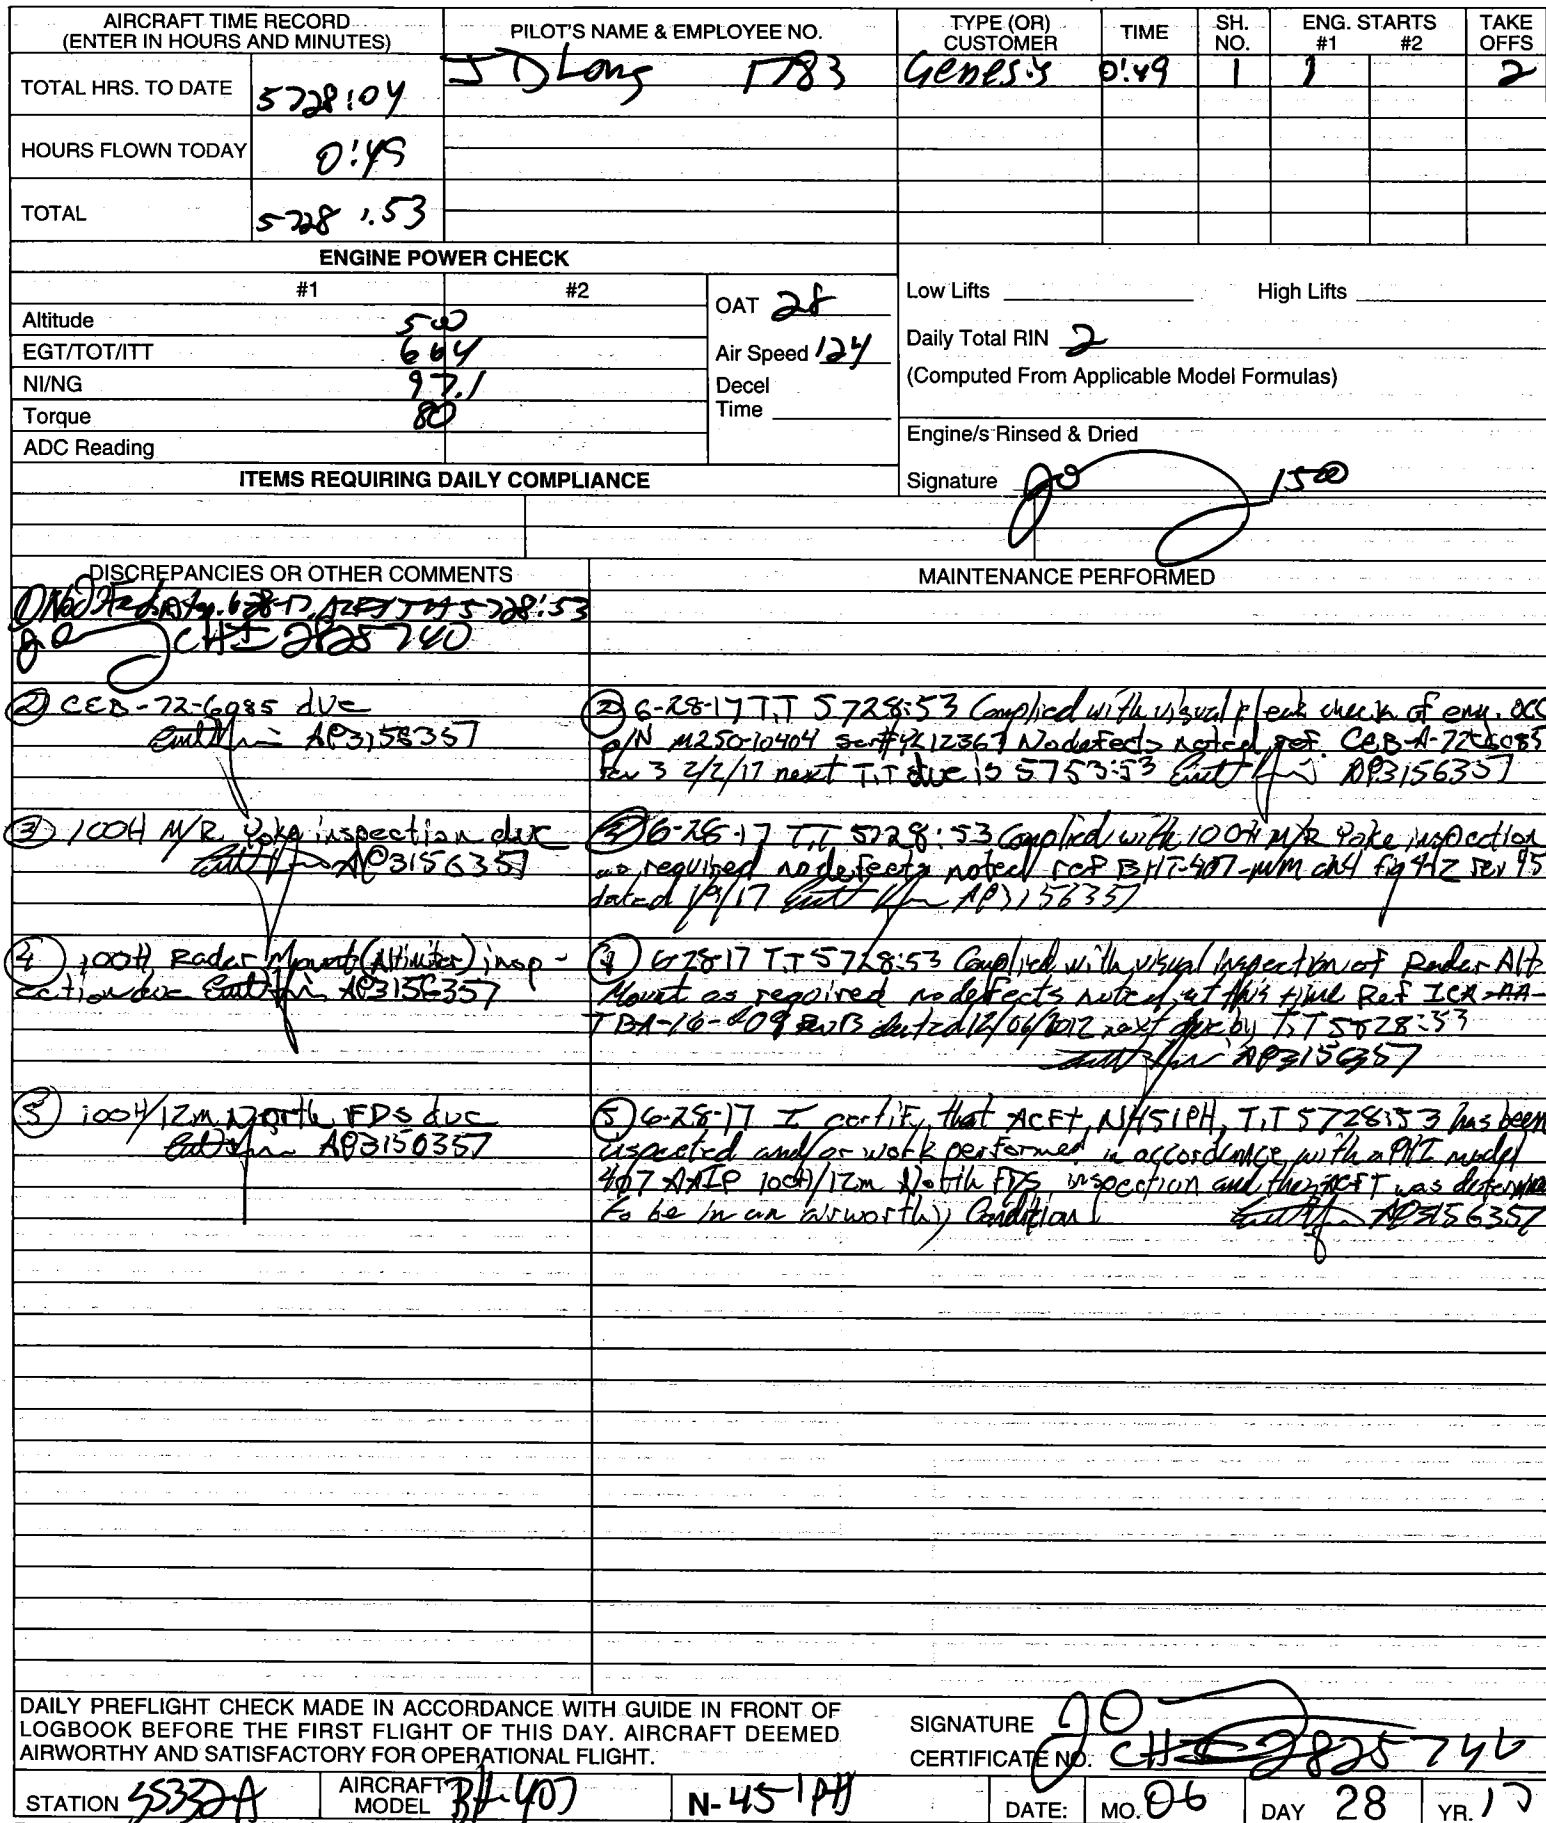 AIRCRAFT TIME RECORD
(ENTER IN HOURS AND MINUTES)
PILOT'S NAME & EMPLOYEE NO.
TYPE (OR) CUSTOMER
TIME
SH. NO.
ENG. STARTS
#1 #2
TAKE OFFS
TOTAL HRS. TO DATE 5728:04
J D Long 1783 Genesis 0:49 1 1 2
HOURS FLOWN TODAY 0:49
TOTAL 5728:53
ENGINE POWER CHECK
#1 #2
Altitude 500
EGT/TOT/ITT 664
NI/NG 97.1
Torque 80
ADC Reading
OAT 28
Air Speed 124
Decel Time
Low Lifts High Lifts
Daily Total RIN 2
(Computed From Applicable Model Formulas)
Engine/s Rinsed & Dried
Signature 1500
ITEMS REQUIRING DAILY COMPLIANCE
DISCREPANCIES OR OTHER COMMENTS
5728:53
2825740
② CEB-72-6085 due
AP3156357
③ 100H M/R Yoke inspection due
AP3156357
④ 100H Radar Mount (Altimiter) insp-
ection due AP3156357
⑤ 100H/12m North FDS due
AP3156357
MAINTENANCE PERFORMED
② 6-28-17 T.T 5728:53 Complied with visual leak check of eng. OCC
P/N M250-10404 Ser# No defects noted ref. CEB-A-72-6085
Rev 3 2/2/17 next T.T due is 5753:53 AP3156357
③ 6-28-17 T.T 5728:53 Complied with 100H M/R Yoke inspection
as required no defects noted ref BHT-407-MM ch4 fig rev
dated AP3156357
④ 6-28-17 T.T 5728:53 Complied with visual inspection of Radar Alt
Mount as required no defects noted at this time Ref ICA-AA-
Rev B dated 12/06/2012 next due by T.T 5828:53
AP3156357
⑤ 6-28-17 I certify that ACFT, N451PH, T.T 5728:53 has been
inspected and/or work performed in accordance with a PHI model
407 AAIP 100H/12m North FDS inspection and the ACFT was
to be in an airworthy Condition AP3156357
DAILY PREFLIGHT CHECK MADE IN ACCORDANCE WITH GUIDE IN FRONT OF
LOGBOOK BEFORE THE FIRST FLIGHT OF THIS DAY. AIRCRAFT DEEMED
AIRWORTHY AND SATISFACTORY FOR OPERATIONAL FLIGHT.
SIGNATURE
CERTIFICATE NO. 2825740
STATION SS332A
AIRCRAFT MODEL BH-407
N-451PH
DATE: MO. 06 DAY 28 YR. 17